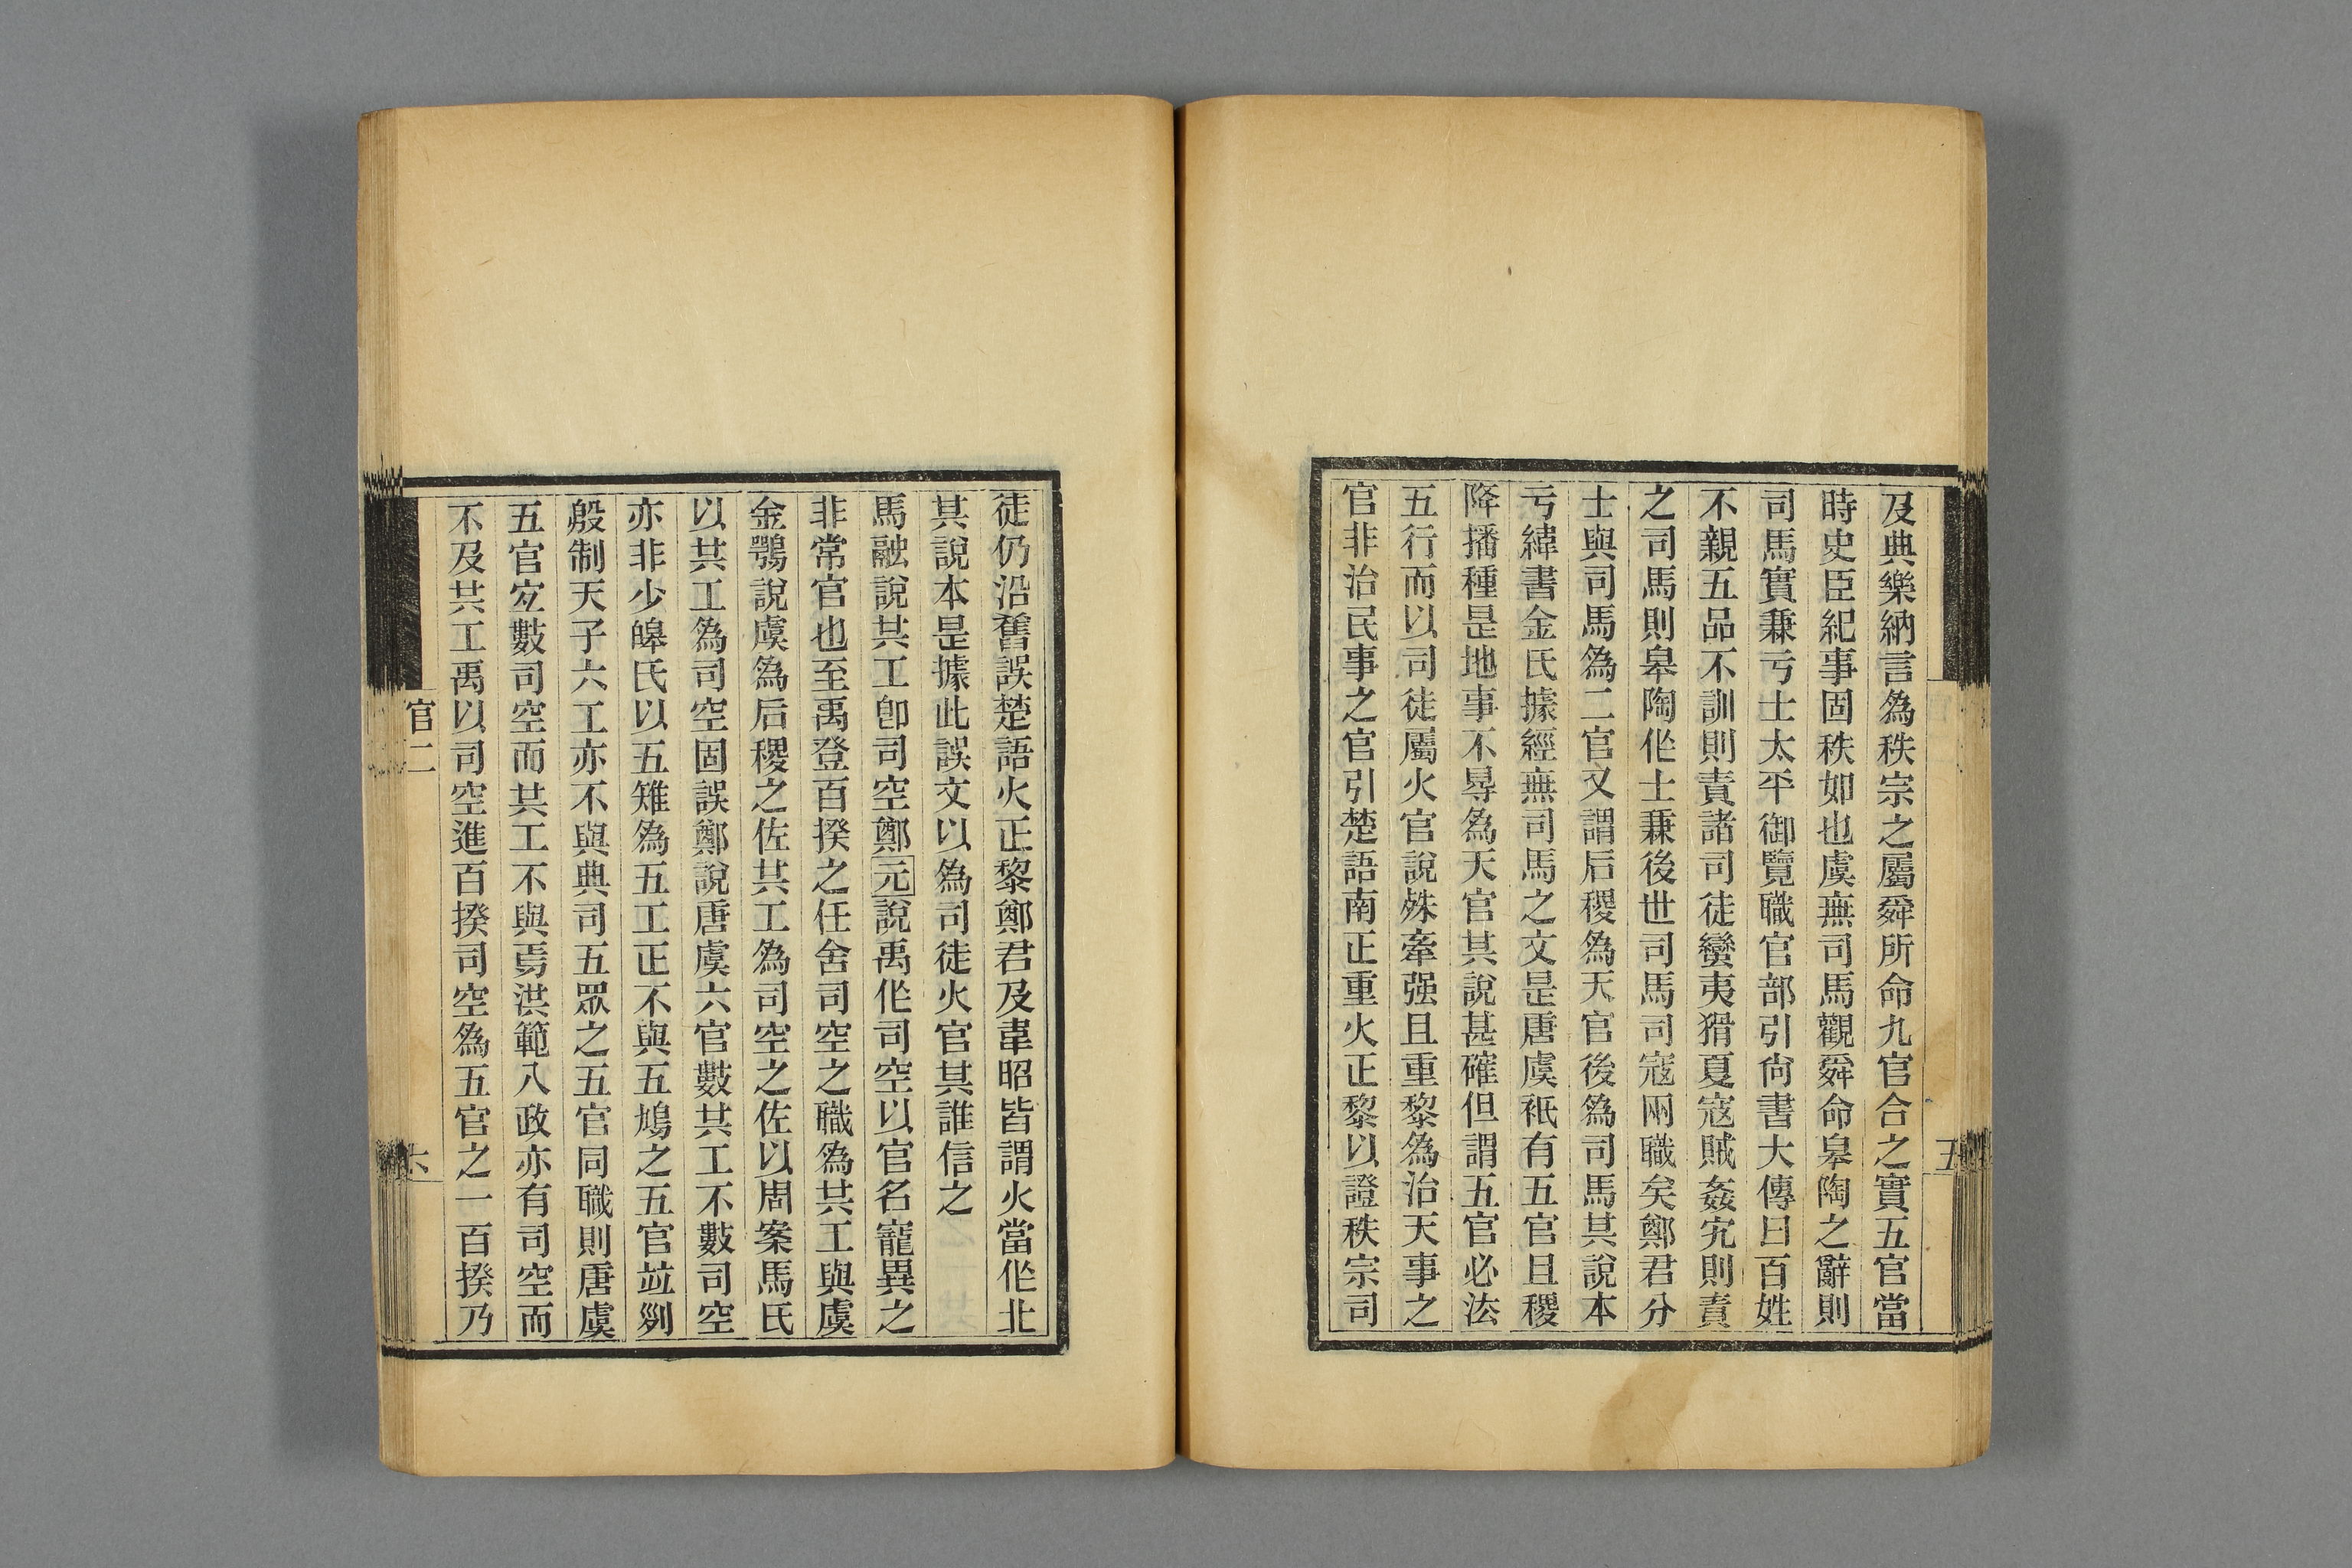 及典樂納言爲秩宗之屬舜所命九官合之實五官當
時史臣紀事固秩如也虞無司馬觀舜命皋陶之辭則
司馬實兼亏士太平御覽職官部引尙書大傳曰百姓
不親五品不訓則責諸司徒蠻夷猾夏寇賊姦宄則責
之司馬則皋陶作士兼後世司馬司寇兩職矣鄭君分
士與司馬爲二官又謂后稷爲天官後爲司馬其說本
亏緯書金氏據經無司馬之文是唐虞衹有五官且稷
降播種是地事不㝵爲天官其說甚確但謂五官必法
五行而以司徒屬火官說殊牽强且重黎爲治天事之
官非治民事之官引楚語南正重火正黎以證秩宗司
五
徒仍沿舊誤楚語火正黎鄭君及韋昭皆謂火當作北
其說本是據此誤文以爲司徒火官其誰信之
馬融說共工卽司空鄭元說禹作司空以官名寵異之
非常官也至禹登百揆之任舍司空之職爲共工與虞
金鶚說虞爲后稷之佐共工爲司空之佐以周案馬氏
以共工爲司空固誤鄭說唐虞六官數共工不數司空
亦非少皞氏以五雉爲五工正不與五鳩之五官竝列
殷制天子六工亦不與典司五眾之五官同職則唐虞
五官宐數司空而共工不與焉洪範八政亦有司空而
不及共工禹以司空進百揆司空爲五官之一百揆乃
官二
六